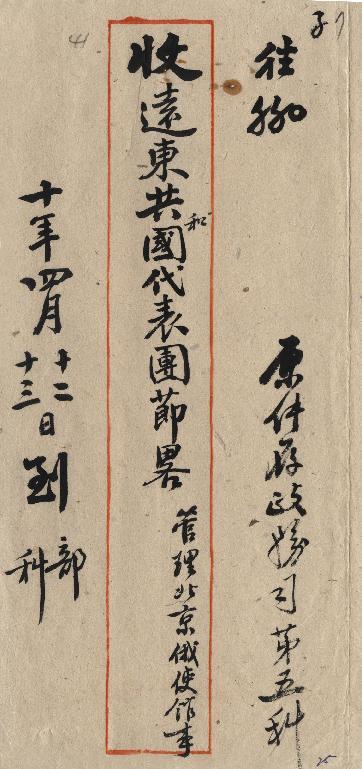 原件存政務司第五科
收遠東共和國代表團節畧
管理北京俄使館事
十年四月十二日到部
十三日到科